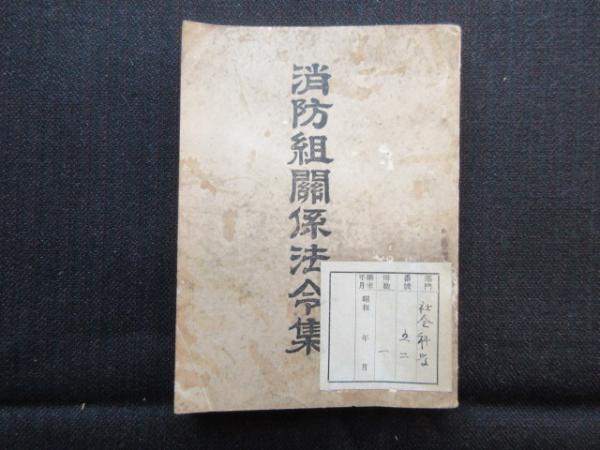 消防組關係法令集
部門 社会科学
番號 五二
冊數 一
購求年月 昭和 年 月